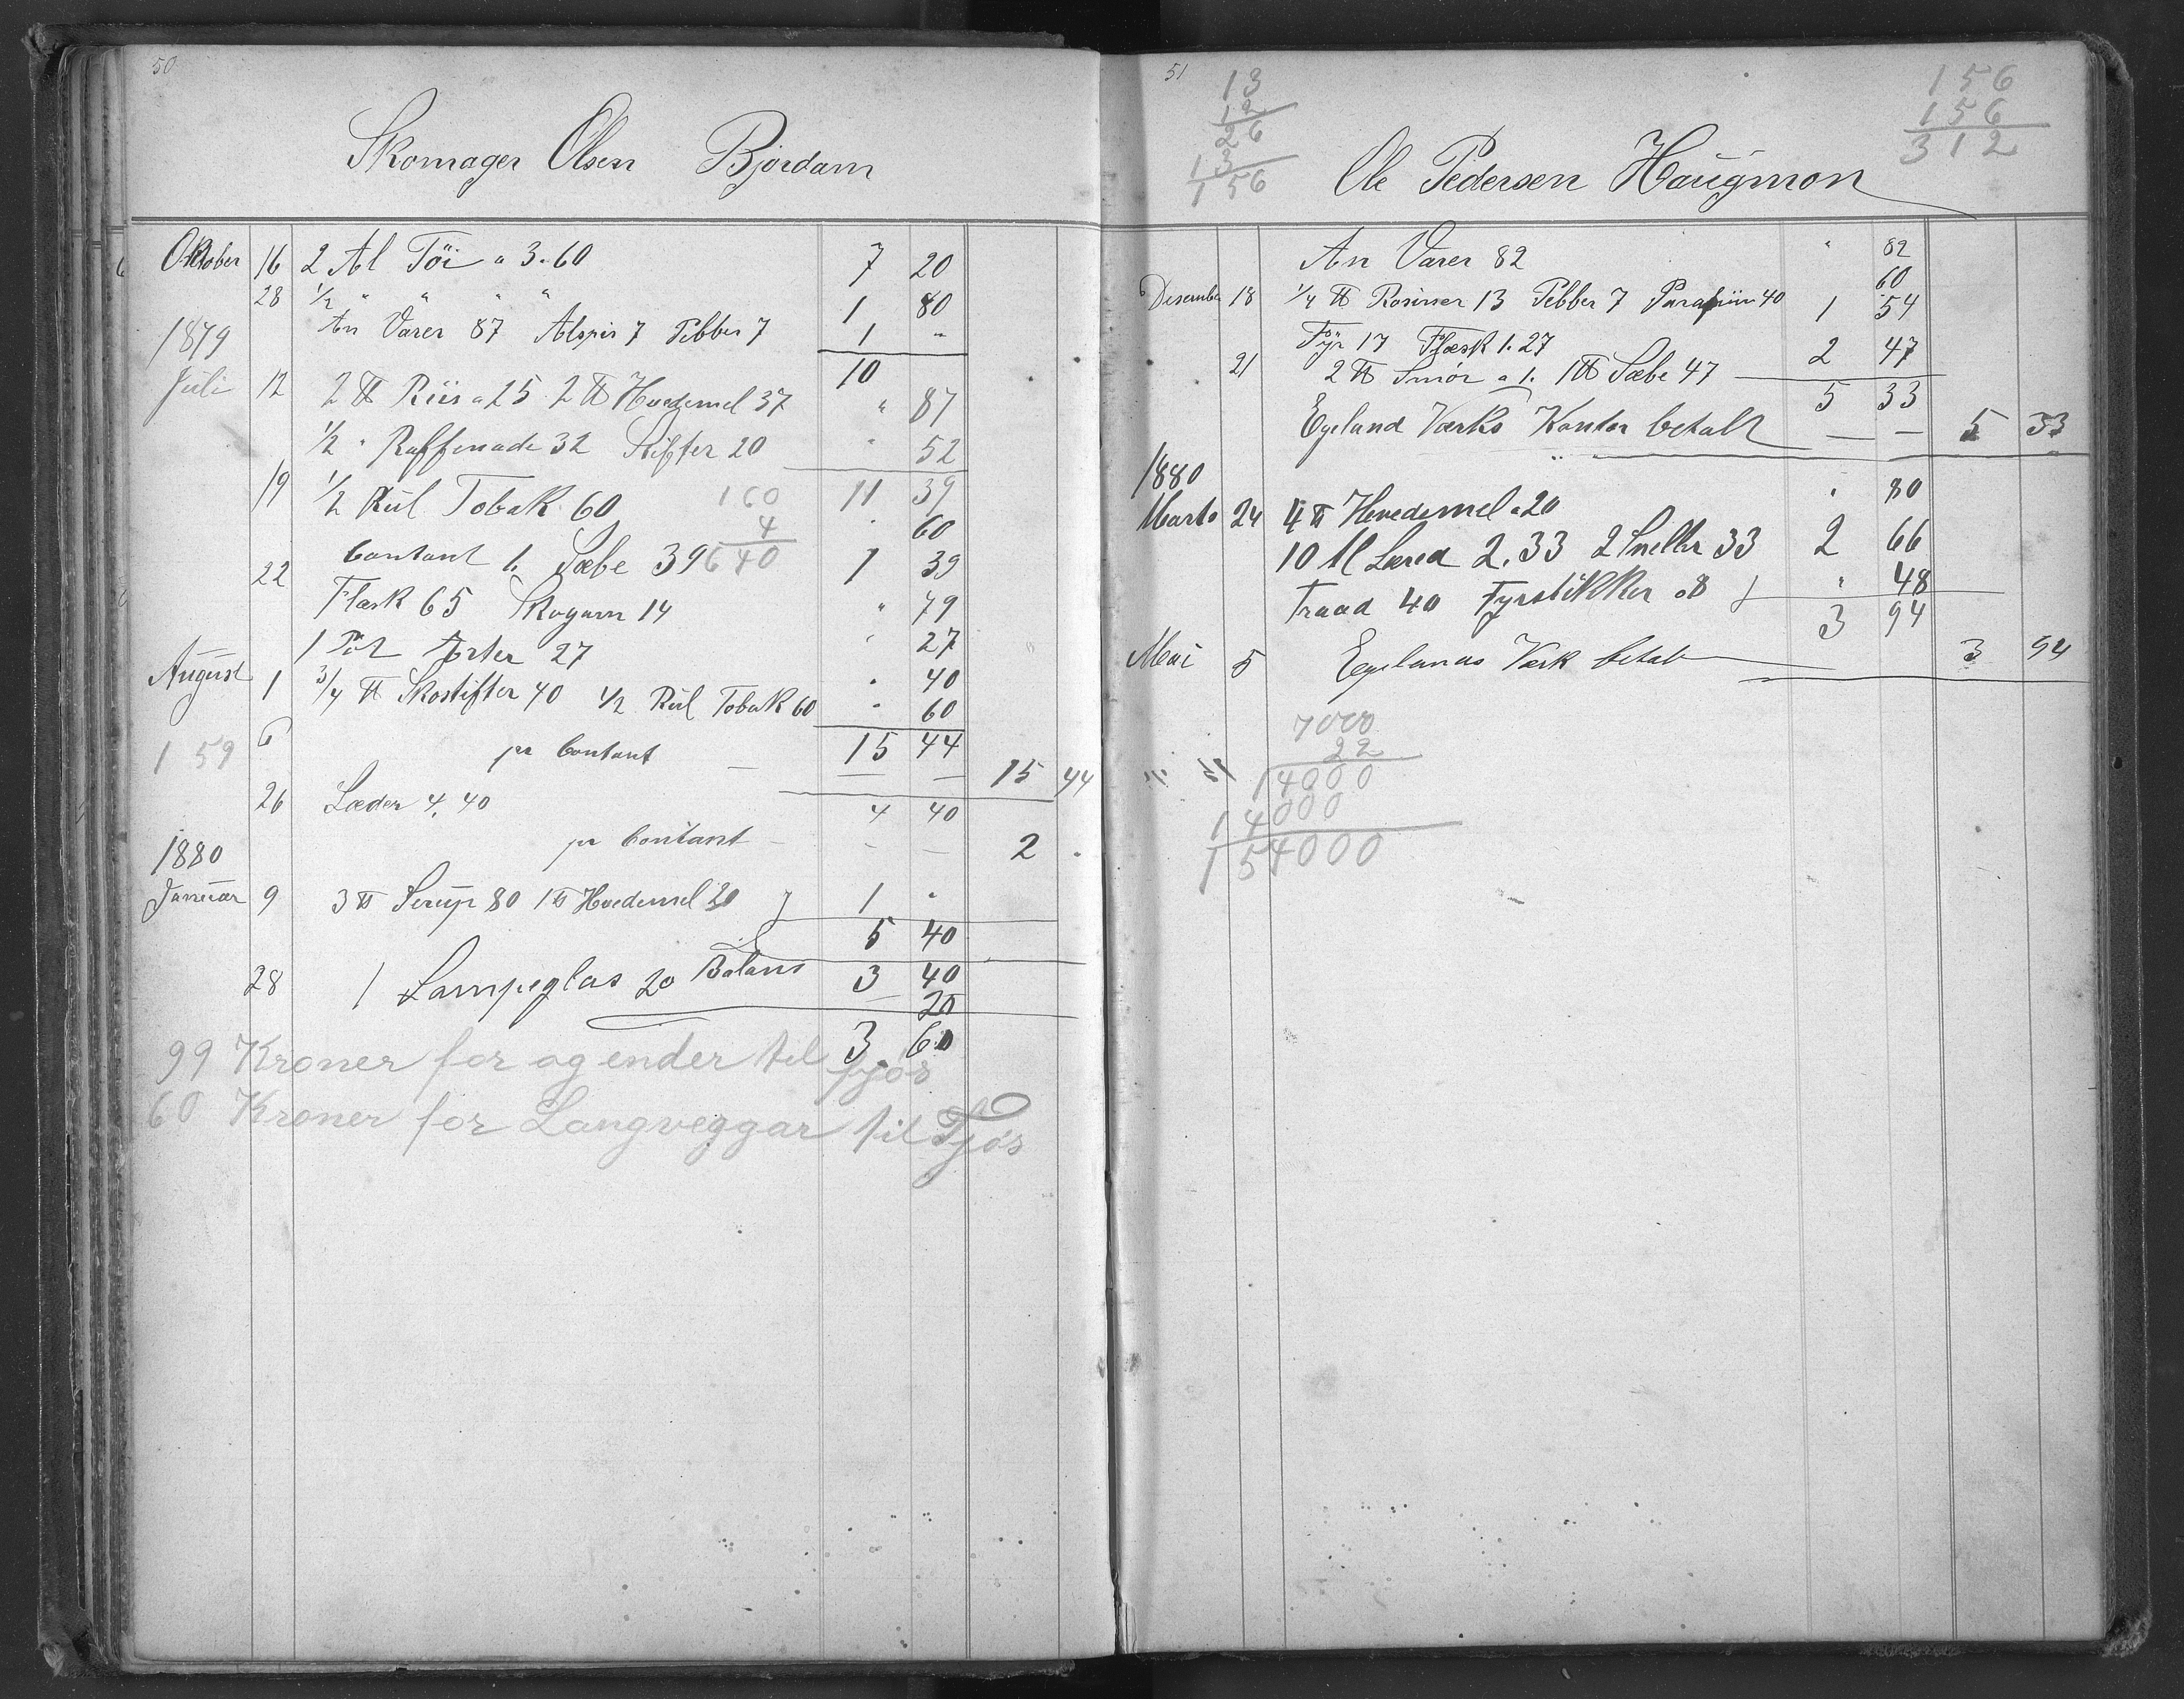 50
Skomager Olsen Bjordam
Oktober 16 2 Al Töi a 3.60 7 20
28 1/2 " " " " 1 80
An Varer 87 Alspis 7 Pebber 7 1 "
1879 10
Juli 12 2 ℔ Riis a 25 2 ℔ Hvedemel 37 " 87
1/2 " Raffenade 32 Stifter 20 " 52
19 1/2 Rul Tobak 60 11 39
" 60
160
4
640
Contant 1. Sæbe 39 1 39
22 Flæsk 65 Skogarn 14 " 79
1 Pot Ærter 27 " 27
August 1 3/4 ℔ Skostifter 40 1/2 Rul Tobak 60 " 40
" 60
6 pr Contant 15 44
— — 15 44
1 59
26 Læder 4.40 4 40
pr Contant — — 2 "
1880
Januar 9 3 ℔ Sirup 80 1 ℔ Hvedemel 20 1 "
5 40
Balans 3 40
28 1 Lampeglas 20 — 20
3 60
99 Kroner for og ender til fjøs
60 Kroner for Langveggar til Fjøs
51
13
12
26
13
156
156
156
312
Ole Pedersen Haugmon
An Varer 82 " 82
60
Desember 18 1/4 ℔ Rosiner 13 Pebber 7 Parafiin 40 1 54
Fyr 17 Flæsk 1.27
21 2 ℔ Smör a 1. 1 ℔ Sæbe 47 2 47
5 33
Egeland Værks Kontor betalt — — 5 33
1880
Marts 24 4 ℔ Hvedemel a 20 " 80
10 Al Lærred 2.33 2 Sneller 33 2 66
Traad 40 Fyrstikker 08 " 48
3 94
Mai 5 Egelands Værk betalt 3 94
7000
22
14000
14000
154000